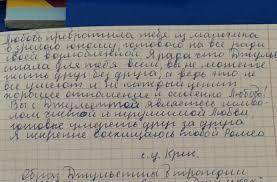 Любовь превратила тебя из мальчика
в зрелого юношу, готового на все ради
своей возлюбленной. Я рада что Джульет
стала для тебя всем, вы не можете
жить друг без друга, а ведь что не
все умеют и не каждый ценит
хорошее отношение и особенно Любовь!
Вы с Джульеттой являетесь симво-
лом чистой и нерушимой Любви
готовые умереть друг за друга
Я искренне восхищаюсь тобой Ромео
с.у. Крис.
Образ Джульетты в трагедии